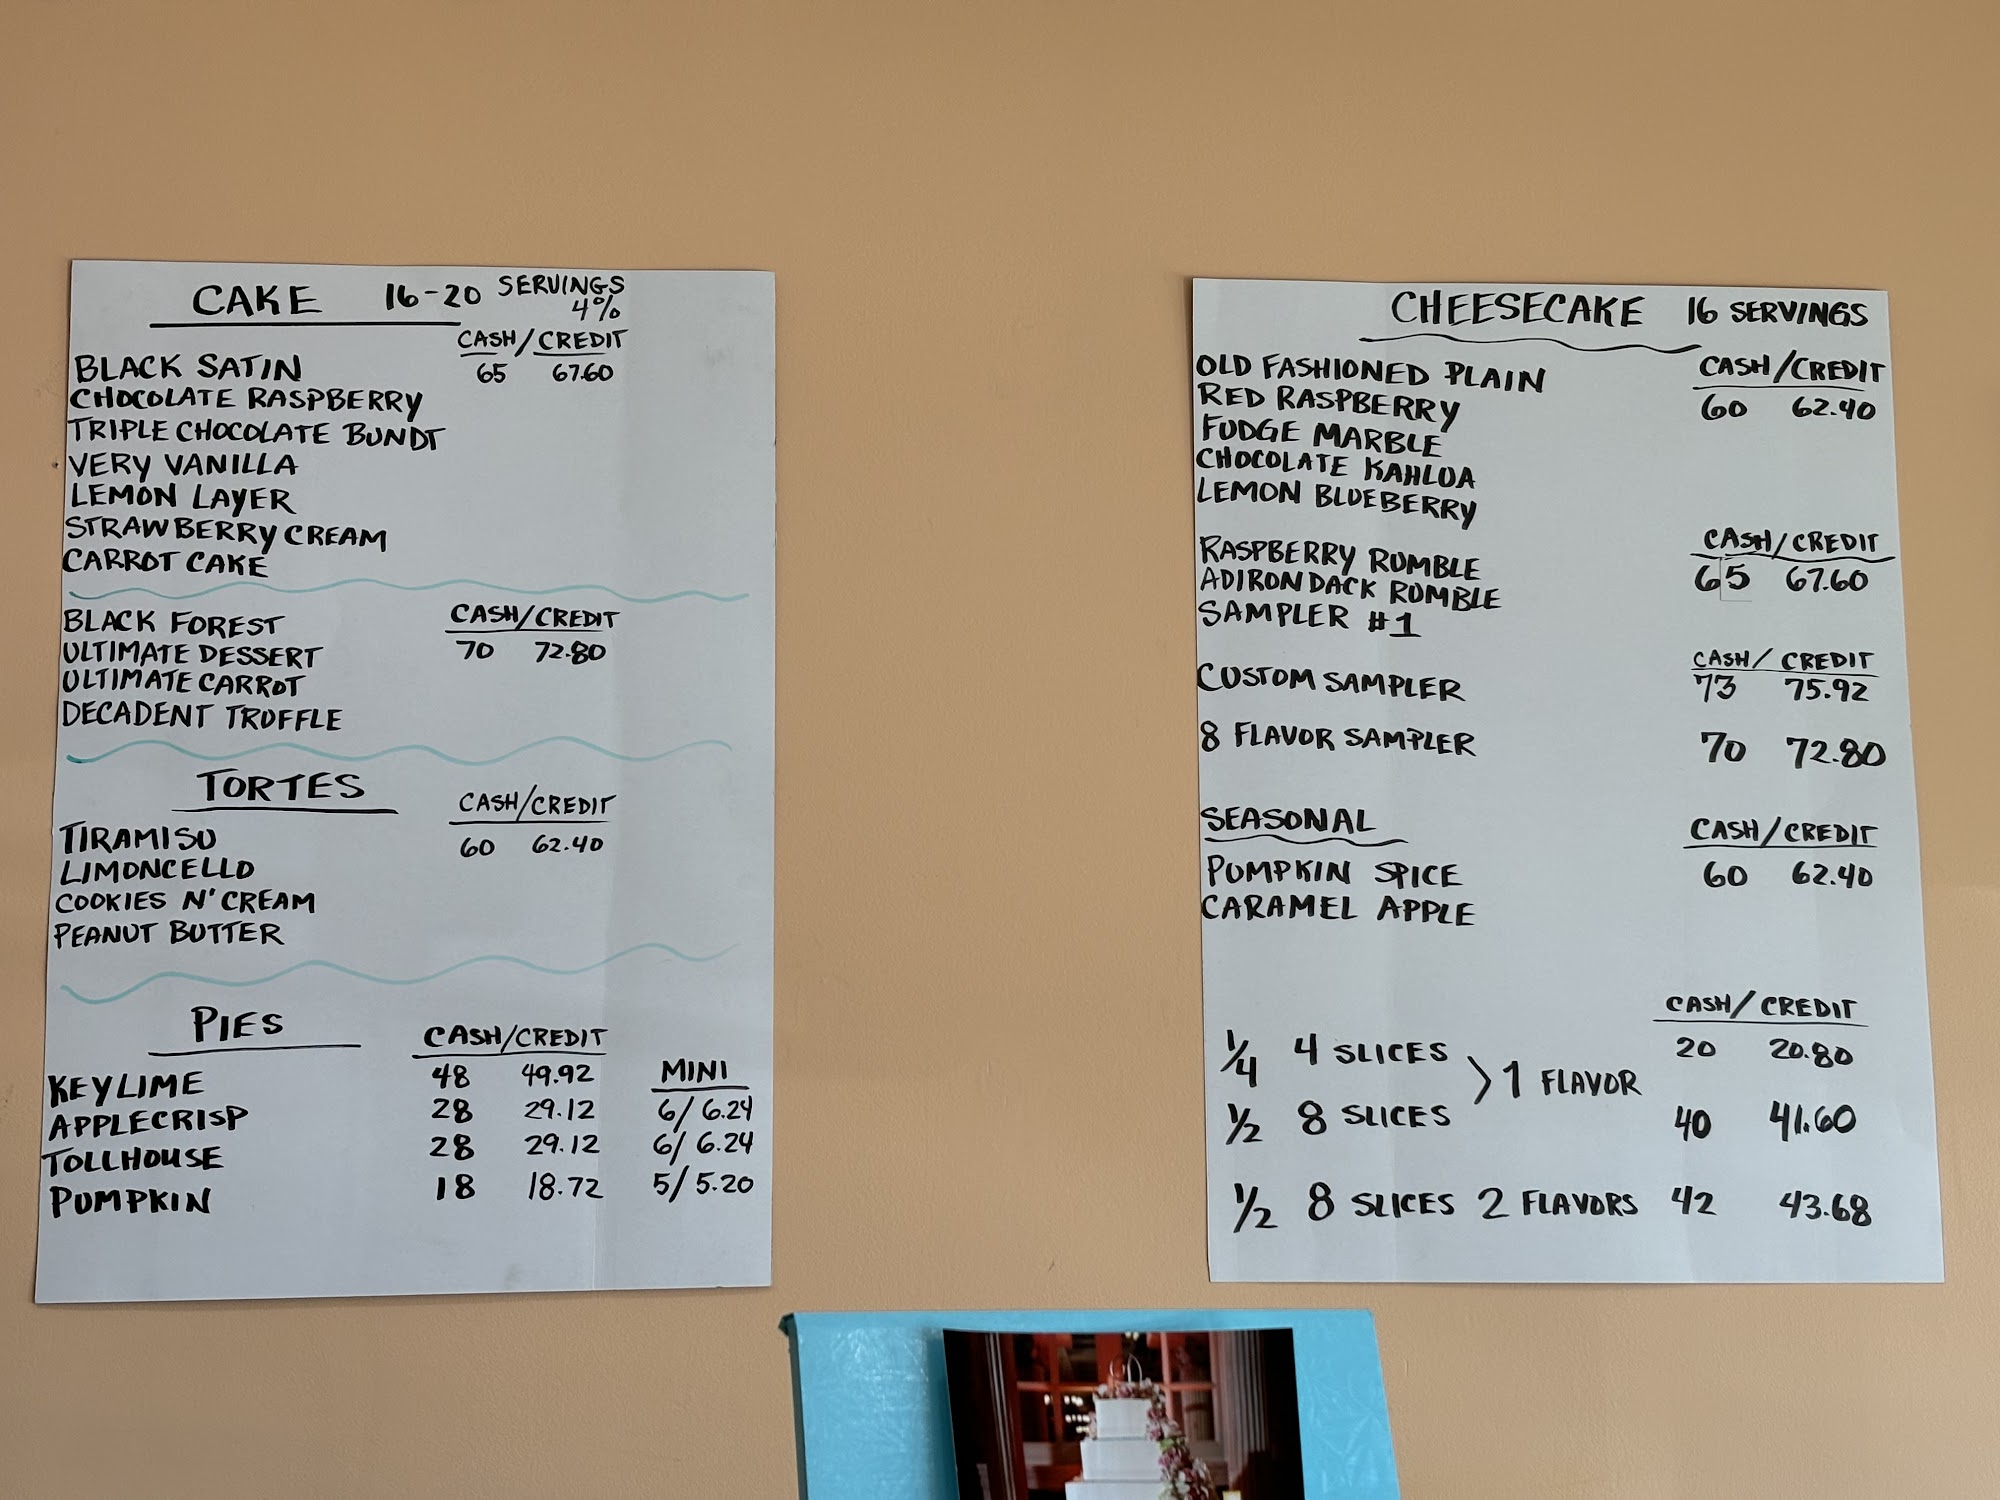 CAKE 16-20 SERVINGS
4%
CASH/CREDIT
BLACK SATIN 65 67.60
CHOCOLATE RASPBERRY
TRIPLE CHOCOLATE BUNDT
VERY VANILLA
LEMON LAYER
STRAWBERRY CREAM
CARROT CAKE
BLACK FOREST CASH/CREDIT
ULTIMATE DESSERT 70 72.80
ULTIMATE CARROT
DECADENT TRUFFLE
TORTES CASH/CREDIT
TIRAMISU 60 62.40
LIMONCELLO
COOKIES N' CREAM
PEANUT BUTTER
PIES CASH/CREDIT
MINI
KEYLIME 48 49.92
APPLECRISP 28 29.12 6/ 6.24
TOLLHOUSE 28 29.12 6/ 6.24
PUMPKIN 18 18.72 5/ 5.20
CHEESECAKE 16 SERVINGS
OLD FASHIONED PLAIN CASH/CREDIT
RED RASPBERRY 60 62.40
FUDGE MARBLE
CHOCOLATE KAHLUA
LEMON BLUEBERRY
CASH/CREDIT
RASPBERRY RUMBLE 65 67.60
ADIRONDACK RUMBLE
SAMPLER #1
CASH/CREDIT
CUSTOM SAMPLER 73 75.92
8 FLAVOR SAMPLER 70 72.80
SEASONAL CASH/CREDIT
PUMPKIN SPICE 60 62.40
CARAMEL APPLE
CASH/CREDIT
1/4 4 SLICES 20 20.80
> 1 FLAVOR
1/2 8 SLICES 40 41.60
1/2 8 SLICES 2 FLAVORS 42 43.68